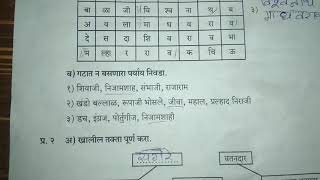 बा ळा जी वि श्व ना थ ब
अ य ला मा ध व रा व
दे स दा शि व रा व भा
म ल्हा र रा व
ब) गटात न बसणारा पर्याय निवडा.
१) शिवाजी, निजामशाह, संभाजी, राजाराम
२) खंडो बल्लाळ, रूपाजी भोसले, जीवा, महाल, प्रल्हाद निराजी
३) डच, इंग्रज, पोर्तुगीज, निजामशाही
प्र. २ अ) खालील तक्ता पूर्ण करा.
वतनदार